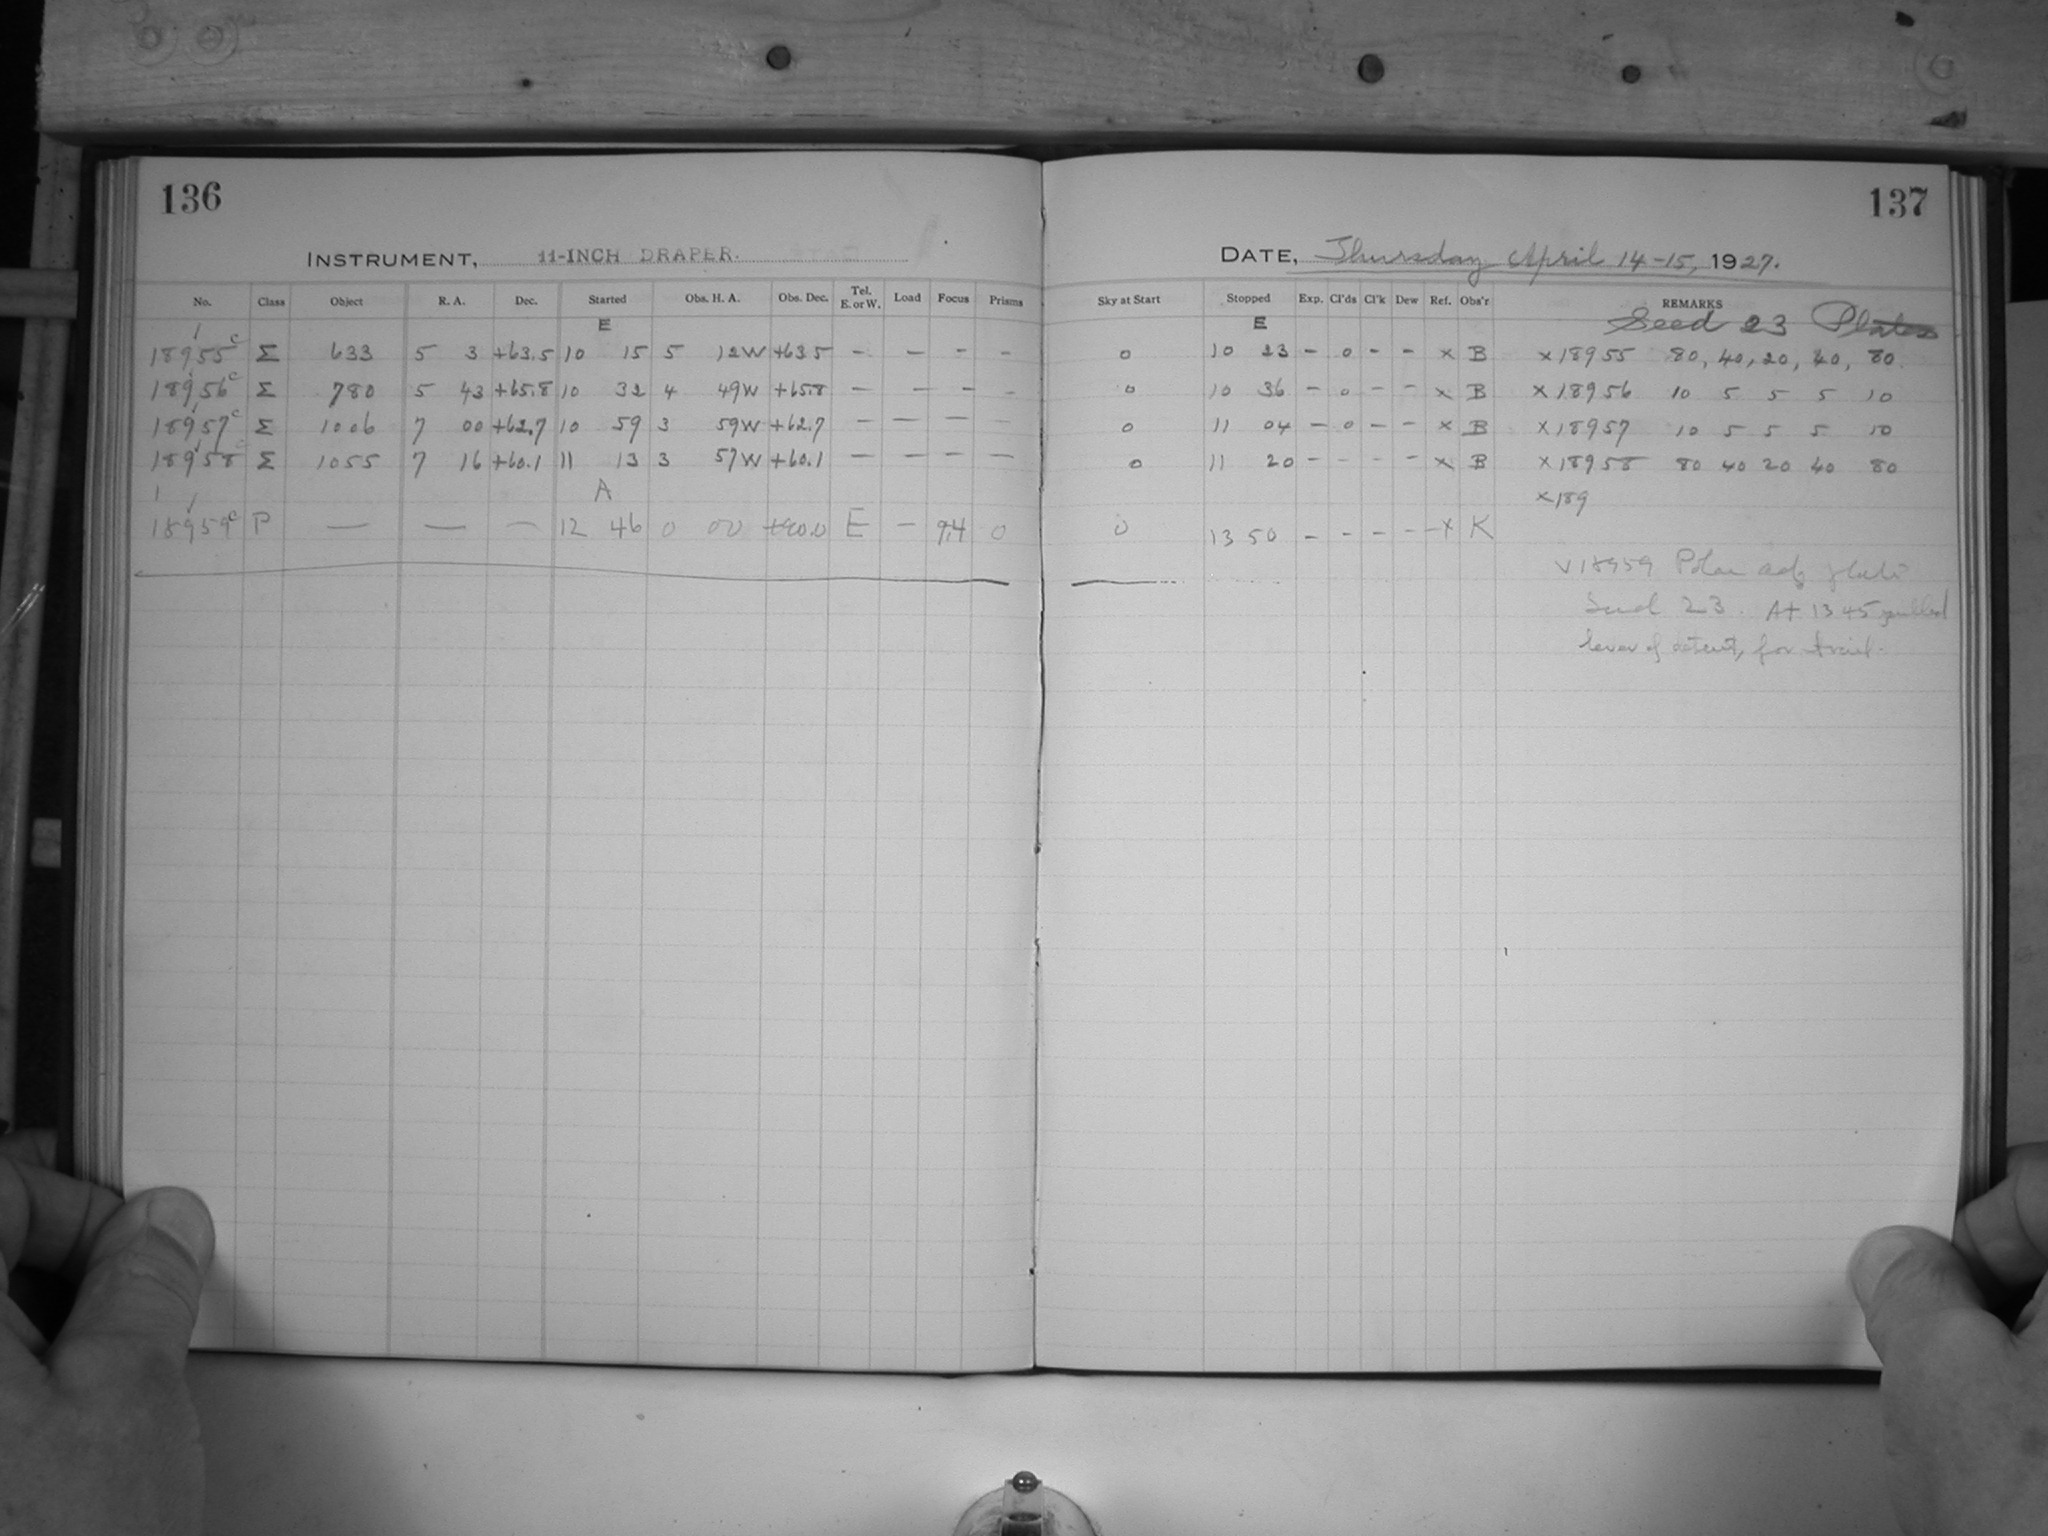 136
137
INSTRUMENT, 11-INCH DRAPER.
DATE, Thursday April 14-15, 1927.
No. Class Object R. A. Dec. Started Obs. H. A. Obs. Dec. Tel. E. or W. Load Focus Prisms Sky at Start Stopped Exp. Cl'ds Cl'k Dew Ref. Obs'r REMARKS
E E Seed 23 Plates
18955c Σ 633 5 3 +63.5 10 15 5 12W +63.5 – – – – 0 10 23 – 0 – – x B x18955 80, 40, 20, 40, 80.
18956c Σ 780 5 43 +65.8 10 32 4 49W +65.8 – – – – 0 10 36 – 0 – – x B x18956 10 5 5 5 10
18957c Σ 1006 7 00 +62.7 10 59 3 59W +62.7 – – – – 0 11 04 – 0 – – x B x18957 10 5 5 5 10
18958c Σ 1055 7 16 +60.1 11 13 3 57W +60.1 – – – – 0 11 20 – – – – x B x18958 80 40 20 40 80
A x189
18959c P – – – 12 46 0 00 +90.0 E – 9.4 0 0 13 50 – – – – x K
v18959 Polar adj plate
Seed 23. At 13 45
lever of detent, for trail.